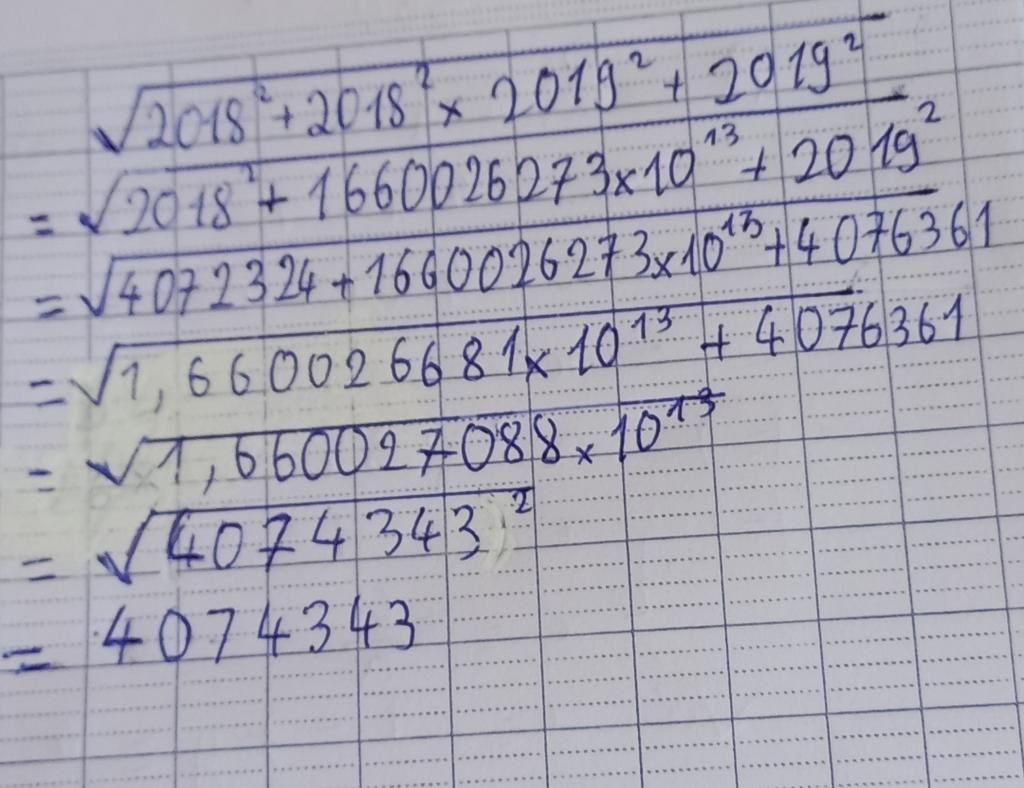 √2018² + 2018² × 2019² + 2019²
= √2018² + 1660026273×10¹³ + 2019²
= √4072324 + 1660026273×10¹³ + 4076361
= √1,660026681×10¹³ + 4076361
= √1,660027088×10¹³
= √4074343²
= 4074343